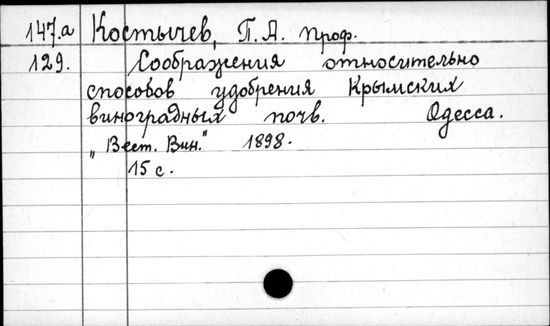 147.а Костычев, П. А. проф.
129. Соображения относительно
способов удобрения Крымских
виноградных почв. Одесса.
„Вест. Вин." 1898.
15 с.